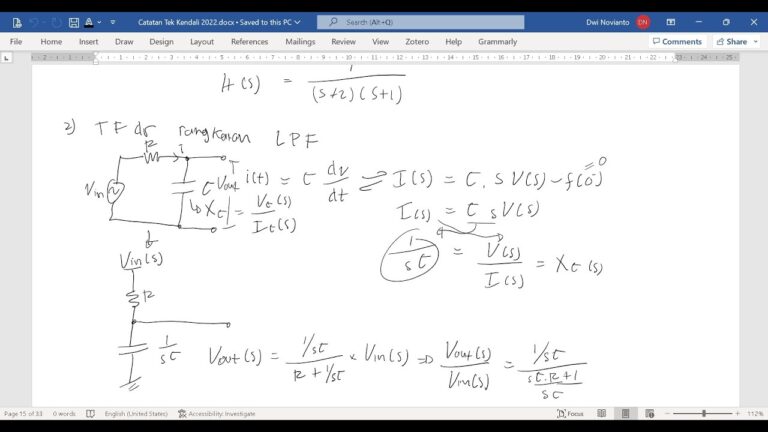 Catatan Tek Kendali 2022.docx • Saved to this PC
Search (Alt+Q)
Dwi Novianto DN
File Home Insert Draw Design Layout References Mailings Review View Zotero Help Grammarly
Comments Share
H(s) = 1/((s+2)(s+1))
2) TF dr rangkaian LPF
R i
Vin C Vout i(t) = C dv/dt ⇌ I(s) = C. s V(s) - f(0) = 0
↳ Xc = Vc(s)/Ic(s) I(s) = C s V(s)
1/sC = V(s)/I(s) = Xc(s)
Vin(s)
R
1/sC Vout(s) = (1/sC)/(R + 1/sC) × Vin(s) ⇒ Vout(s)/Vin(s) = (1/sC)/((sC.R+1)/sC)
Page 15 of 33 0 words English (United States) Accessibility: Investigate Focus 112%